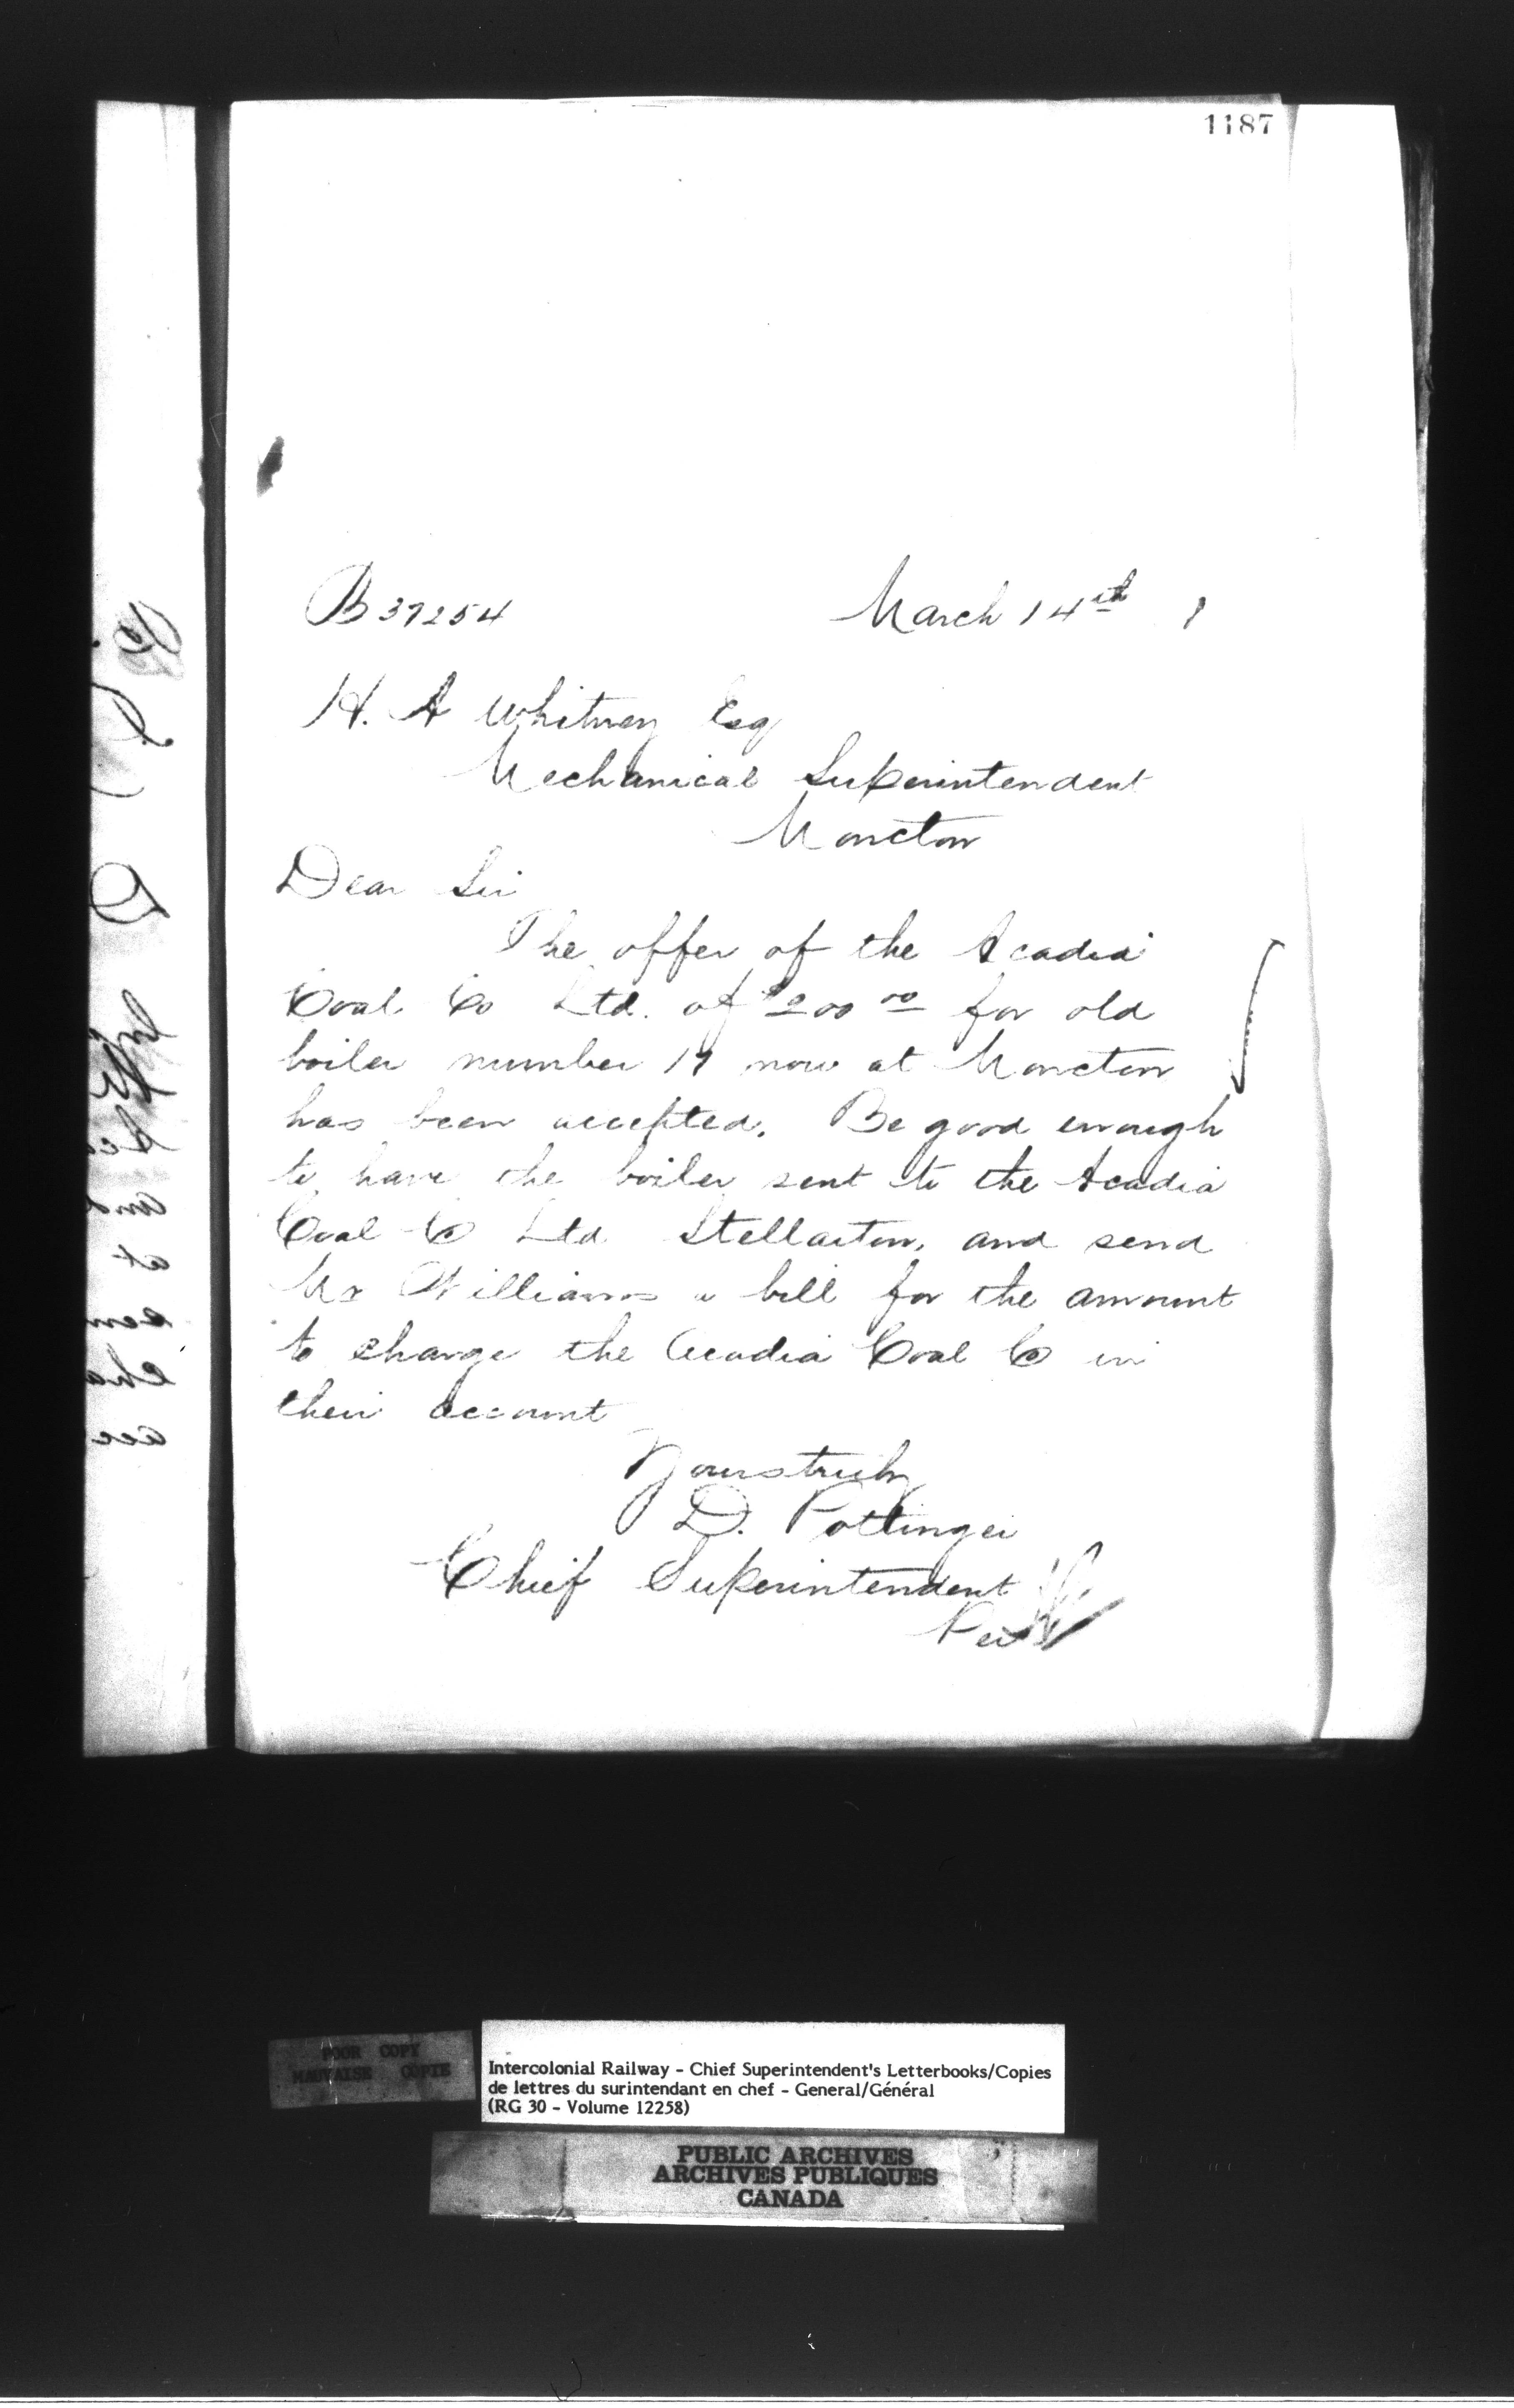 1187
B 37254 March 14th 1
H. A Whitney Esq
Mechanical Superintendent
Moncton
Dear Sir
The offer of the Acadia
Coal Co Ltd. of $200 00 for old
boiler number 17 now at Moncton
has been accepted. Be good enough
to have the boiler sent to the Acadia
Coal Co Ltd Stellarton, and send
Mr Williams a bill for the amount
to charge the Acadia Coal Co in
their account
Yours truly
D. Pottinger
Chief Superintendent
Per
POOR COPY
MAUVAISE COPIE
Intercolonial Railway - Chief Superintendent's Letterbooks/Copies
de lettres du surintendant en chef - General/Général
(RG 30 - Volume 12258)
PUBLIC ARCHIVES
ARCHIVES PUBLIQUES
CANADA